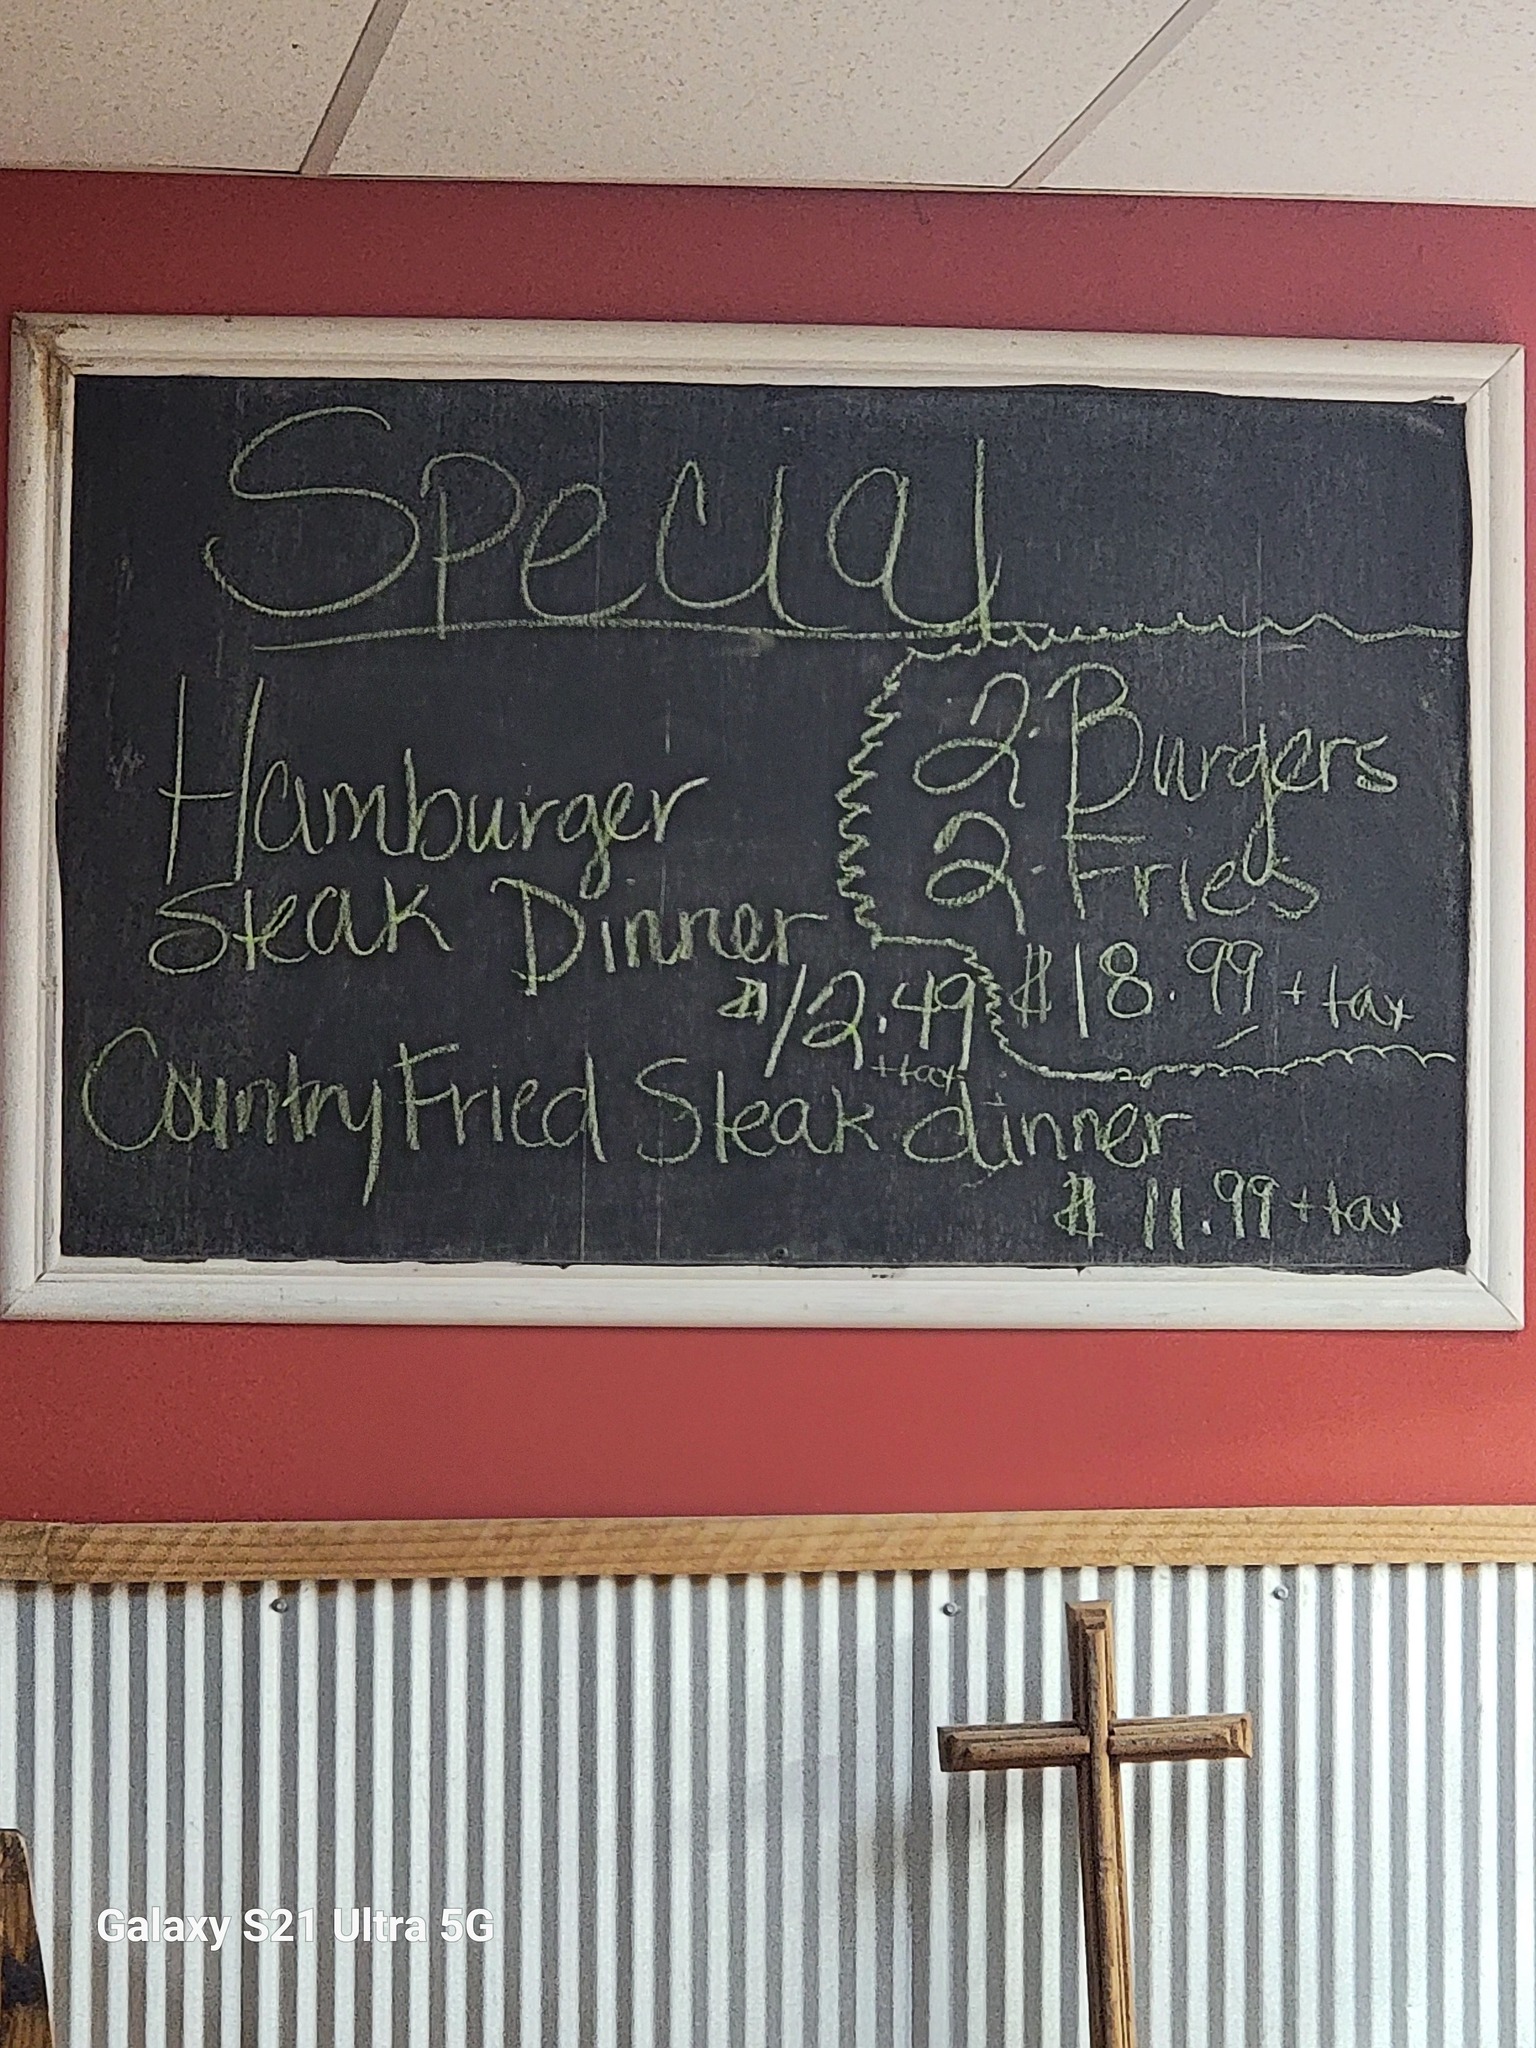 Special
Hamburger
Steak Dinner
$12.49
+tax
2 Burgers
2 Fries
$18.99 + tax
Country Fried Steak dinner
$11.99 + tax
Galaxy S21 Ultra 5G